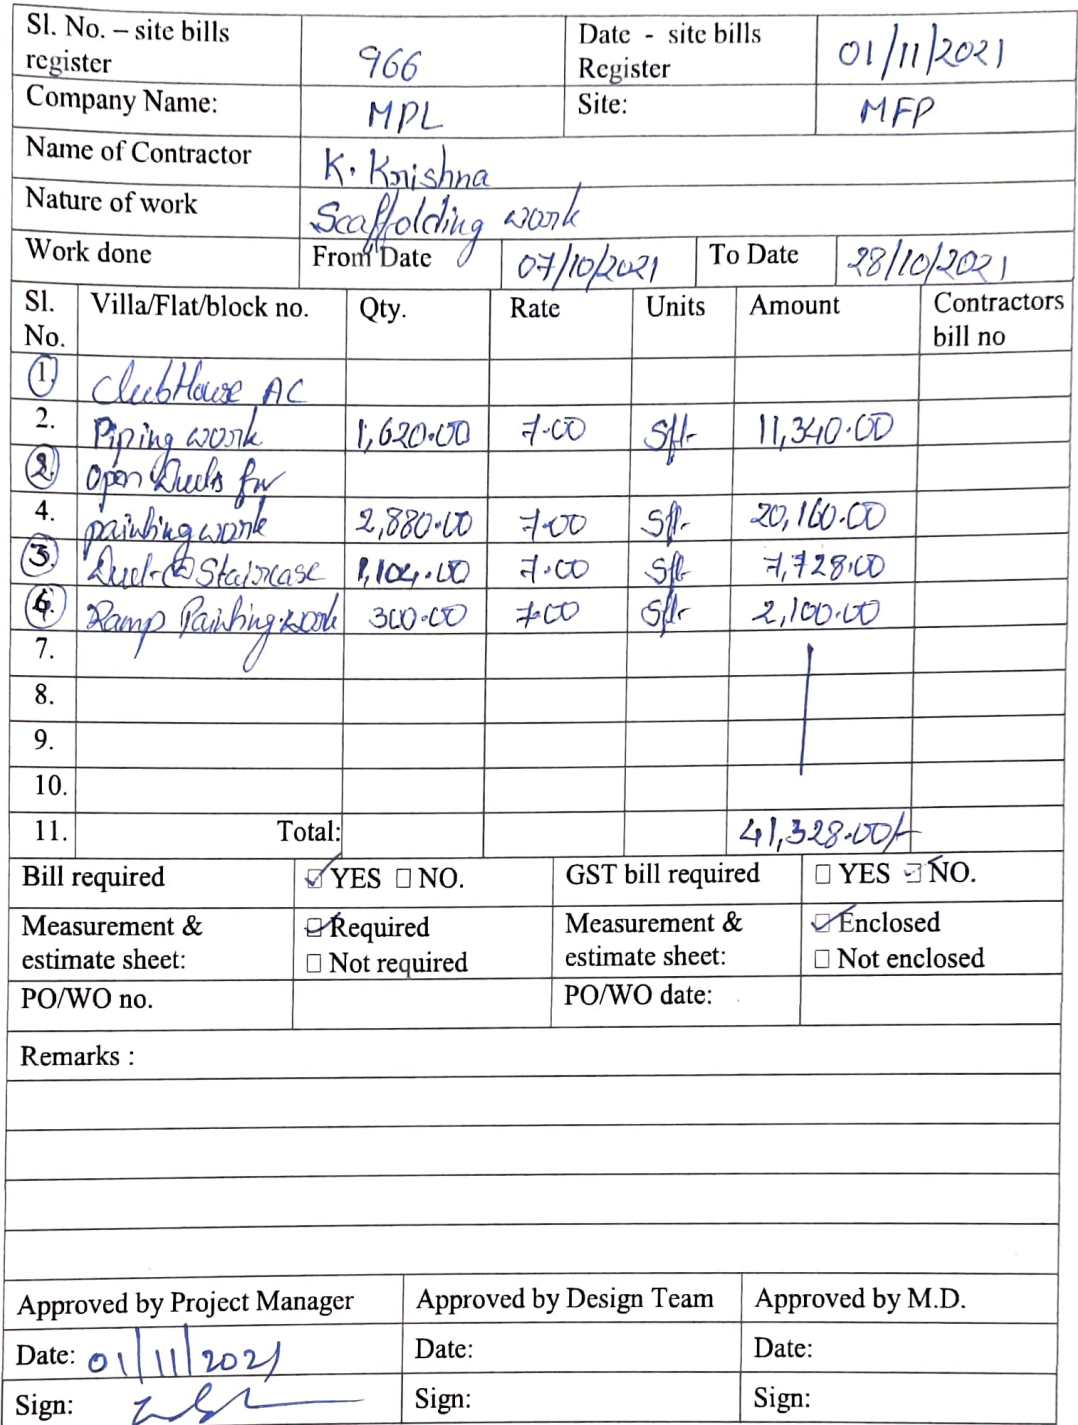 Sl. No. – site bills register 966 Date - site bills Register 01/11/2021
Company Name: MPL Site: MFP
Name of Contractor K. Krishna
Nature of work Scaffolding work
Work done From Date 07/10/2021 To Date 28/10/2021
Sl. No. Villa/Flat/block no. Qty. Rate Units Amount Contractors bill no
1. ClubHouse AC
2. Piping work 1,620.00 7.00 Sft. 11,340.00
2. Open Ducts for
4. painting work 2,880.00 7.00 Sft. 20,160.00
3. Duct @ Staircase 1,104.00 7.00 Sft. 7,728.00
4. Ramp Painting work 300.00 7.00 Sft. 2,100.00
7.
8.
9.
10.
11. Total: 41,328.00/-
Bill required YES NO. GST bill required YES NO.
Measurement & estimate sheet: Required Measurement & estimate sheet: Enclosed
Not required Not enclosed
PO/WO no. PO/WO date:
Remarks :
Approved by Project Manager Approved by Design Team Approved by M.D.
Date: 01/11/2021 Date: Date:
Sign: Sign: Sign: